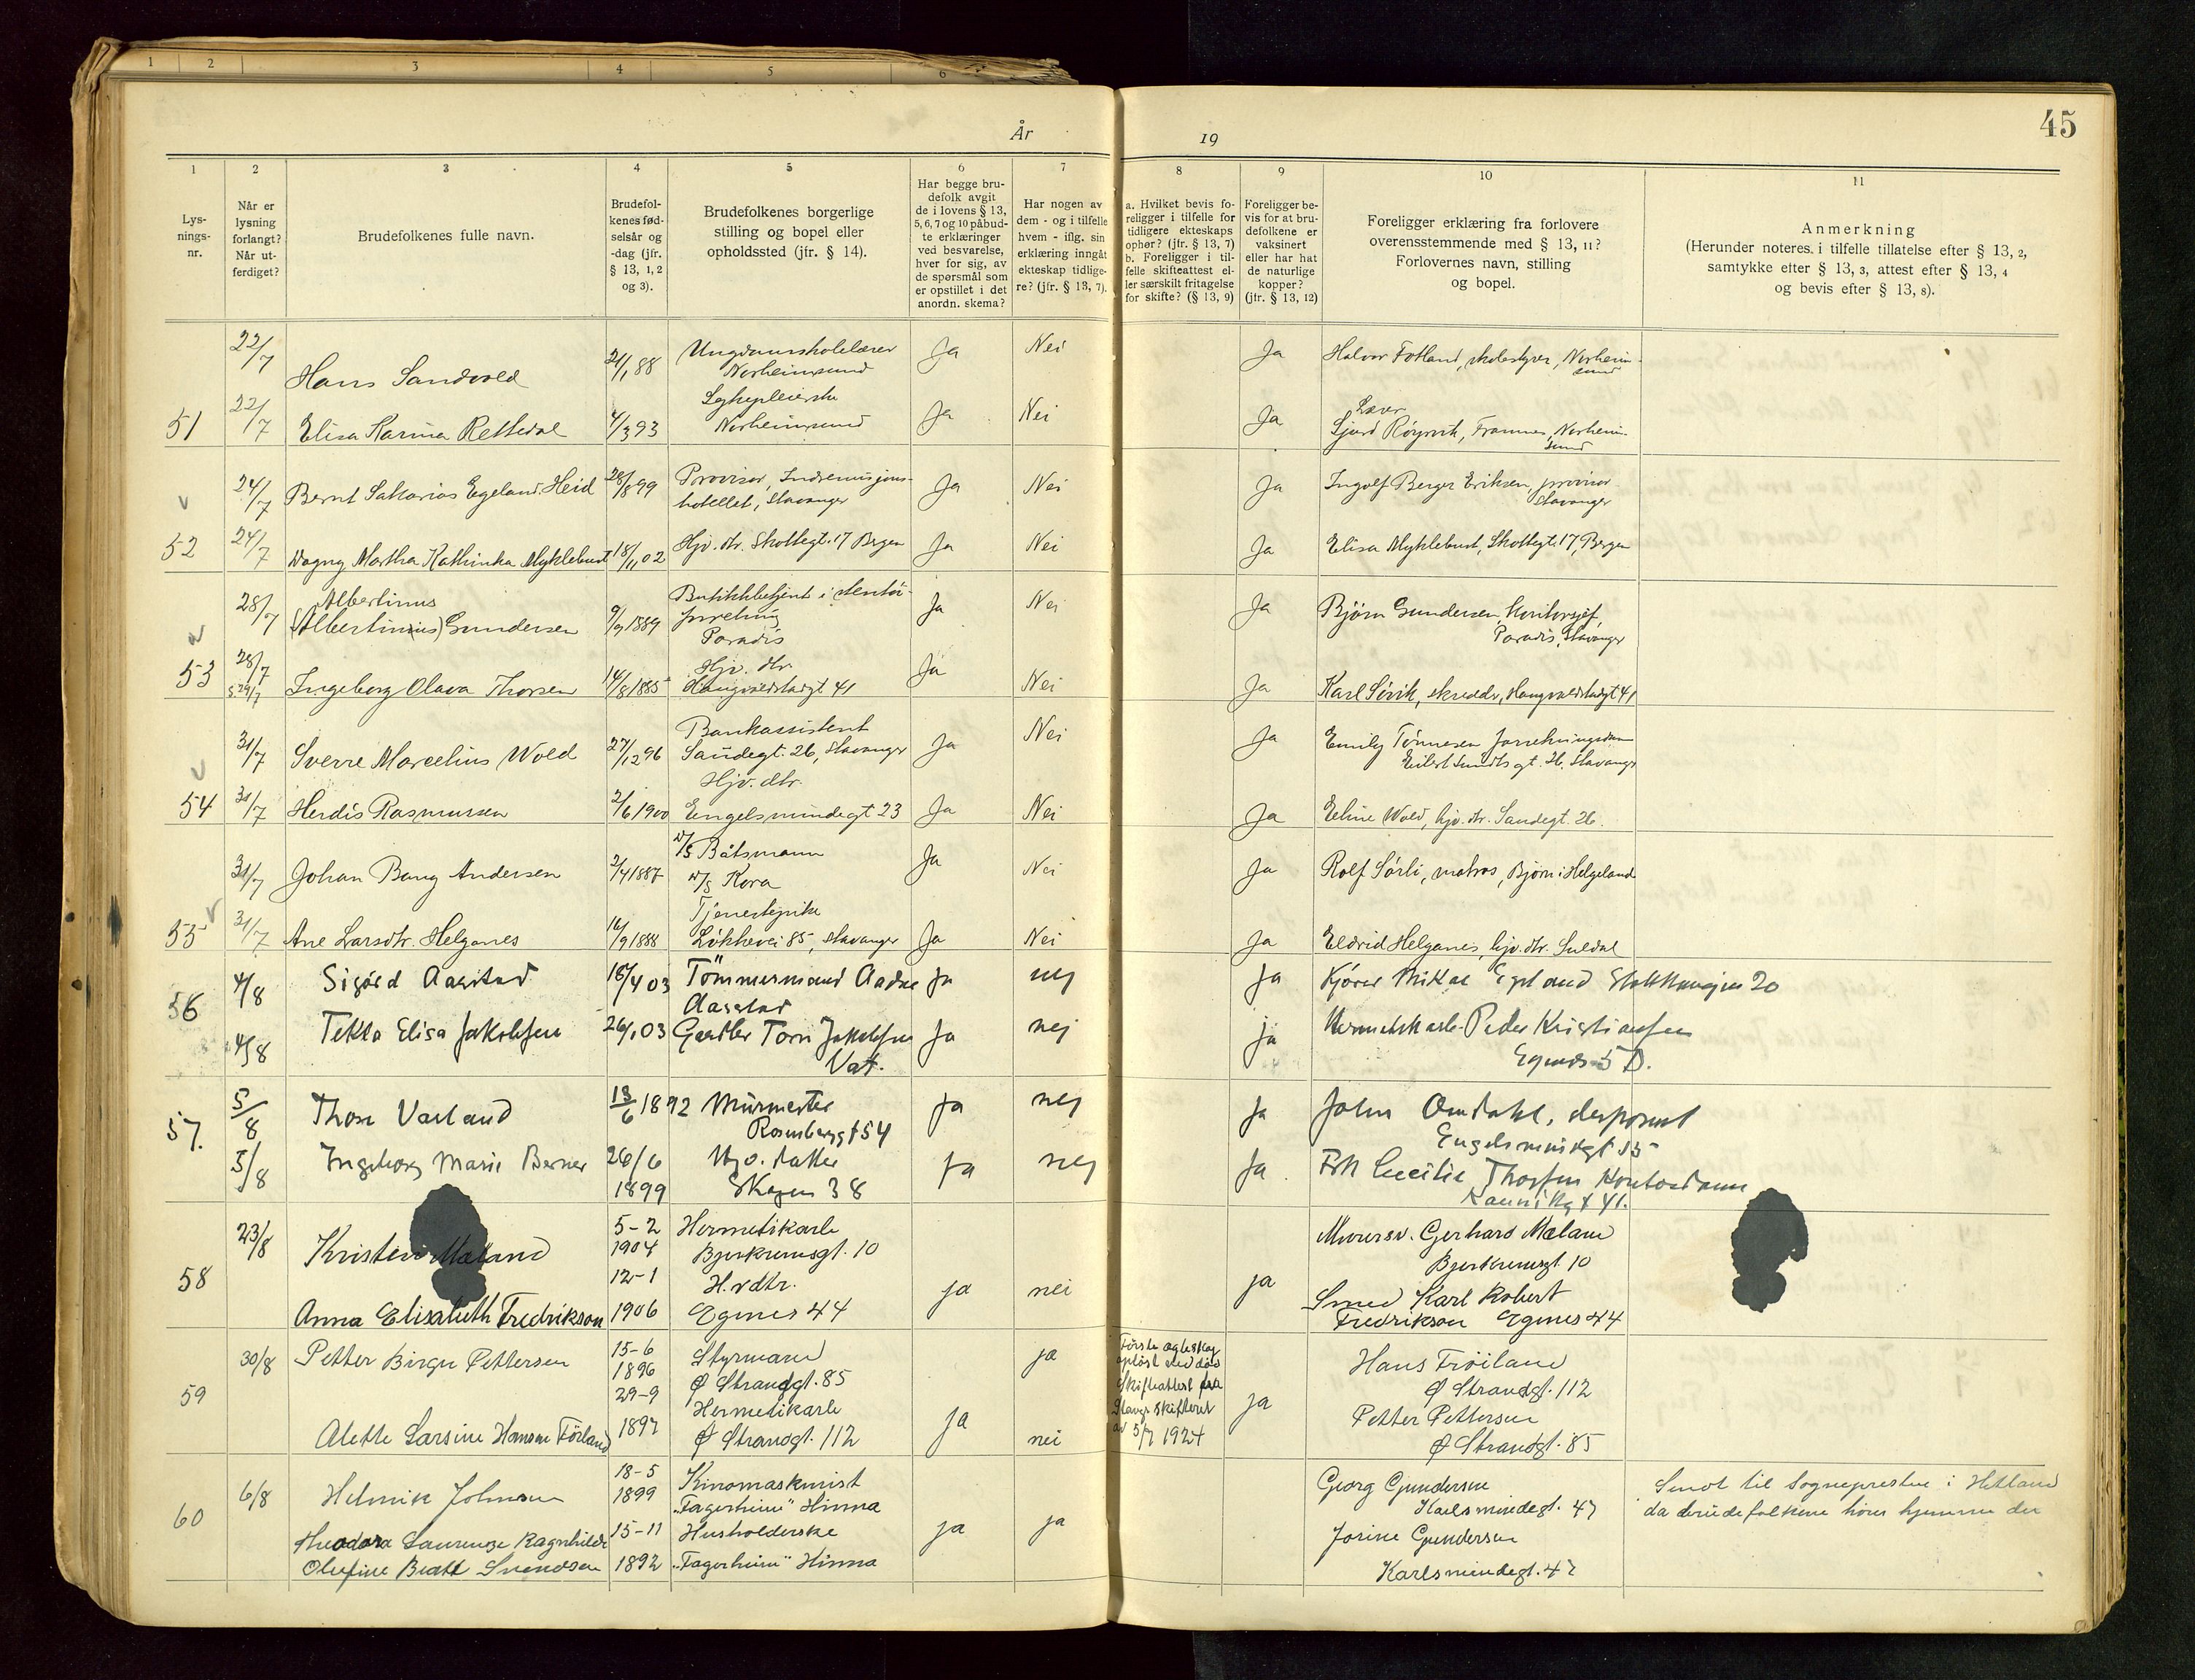 1 2 3 4 5 6
År 19
45
1 2 3 4 5 6 7 8 9 10 11
Lys-
nings-
nr.
Når er
lysning
forlangt?
Når ut-
ferdiget?
Brudefolkenes fulle navn.
Brudefol-
kenes fød-
selsår og
-dag (jfr.
§ 13, 1, 2
og 3).
Brudefolkenes borgerlige
stilling og bopel eller
opholdssted (jfr. § 14).
Har begge bru-
defolk avgit
de i lovens § 13,
5, 6, 7 og 10 påbud-
te erklæringer
ved besvarelse,
hver for sig, av
de spørsmål som
er opstillet i det
anordn. skema?
Har nogen av
dem - og i tilfelle
hvem - iflg. sin
erklæring inngåt
ekteskap tidlige-
re? (jfr. § 13, 7).
a. Hvilket bevis fo-
religger i tilfelle for
tidligere ekteskaps
ophør? (jfr. § 13, 7)
b. Foreligger i til-
felle skifteattest el-
ler særskilt fritagelse
for skifte? (§ 13, 9)
Foreligger be-
vis for at bru-
defolkene er
vaksinert
eller har hat
de naturlige
kopper?
(jfr. § 13, 12)
Foreligger erklæring fra forlovere
overensstemmende med § 13, 11?
Forlovernes navn, stilling
og bopel.
Anmerkning
(Herunder noteres. i tilfelle tillatelse efter § 13, 2,
samtykke efter § 13, 3, attest efter § 13, 4
og bevis efter § 13, 8).
22/7 Hans Sandvold 21/1 88 Ungdomsskolelærer
Norheimsund Ja Nei Ja Halvor Fotland, skolestyrer, Norheim-
sund
51 22/7 Elisa Karina Rettedal 4/3 93 Sykepleierske
Norheimsund Ja Nei Ja Lærer
Sjurd Röyrvik, Framnes, Norheim-
sund
24/7 Bernt Sakarias Egeland Heid 28/8 99 Provisor, Indremisjons-
hotellet, Stavanger Ja Nei Ja Ingolf Berger Eriksen, provisor
Stavanger
52 24/7 Dagny Martha Kathinka Myklebust 18/11 02 Hjv. dtr. Skottegt. 17 Bergen Ja Nei Ja Elisa Myklebust, Skottegt. 17, Bergen
28/7 Albertinus
(Albertinius) Gundersen 9/9 1889 Butikkbetjent i
forretning
Paradis Ja Nei Ja Björn Gundersen, kontorsjef,
Paradis, Stavanger
53 28/7
s 29/7 Ingeborg Olava Thorsen 14/8 1885 Hjv. dtr.
Haugvaldstadgt 41 Ja Nei Ja Karl Sörvik, skredder, Haugvaldstadgt 41
31/7 Sverre Marcelius Wold 27/12 96 Bankassistent
Sandegt. 26, Stavanger Ja Nei Ja Emily Tönnesen
Eilert Sundts gt. 26. Stavanger
54 31/7 Herdis Rasmussen 2/6 1900 Hjv. dtr.
Engelsmindegt 23 Ja Nei Ja Eline Wold, hjv. dtr. Sandegt. 26.
31/7 Johan Bang Andersen 2/4 1887 D/S Båtsmann
D/S Kora Ja Nei Ja Rolf Sörli, matros, Bjørn i Helgeland
55 31/7 Ane Larsdtr. Helganes 16/9 1888 Tjenestepike
Lökkevei 85, Stavanger Ja Nei Ja Eldrid Helganes, hjv. dtr. Suldal
56 4/8 Sigurd Aarstad 18/4 03 Tömmermand Aadne
Aarstad Ja nej Ja Kjörer Mikal Egeland Stokkaveien 20
4/8 Tekla Elisa Jakobsen 26/1 03 Gartler Torn Jakobsen
Vat. Ja nej ja Hermetikarb. Peder Kristiansen
Egenæs 5 D.
57. 5/8 Thor Varland 13/6 1892 Murmester
Rosenberggt 54 Ja nej Ja John Omdahl, disponent
Engelsmindegt 15
5/8 Ingeborg Marie Berner 26/6
1899 Hjv. datter
Skagen 38 Ja nej Ja Frk Cecilie Thorsen Kontordame
Kannikgt 41.
58 23/8 Kristen Mæland 5-2
1904 Hermetikarb
Bjerkreimsgt. 10 Murersv. Gerhard Mæland
Bjerkreimsgt 10
Anna Elisabeth Fredrikson 12-1
1906 H. v dtr.
Egenes 44 ja nei ja Smed Karl Robert
Fredrikson Egenes 44
59 30/8 Petter Birger Pettersen 15-6
1896 Styrmann
Ø Strandgt. 85 ja Første ægteskap
opløst ved død
Skifteattest fra
Stavgr skifteret
av 5/7 1924 Hans Fröiland
Ø Strandgt. 112
Alette Larsine Hansen Förland 29-9
1897 Hermetikarb
Ø Strandgt. 112 Ja nei ja Petter Pettersen
Ø Strandgt. 85
60 6/8 Helmik Johnsen 18-5
1899 Kinomaskinist
„Fagerheim" Hinna Georg Gundersen
Karlsmindegt. 47 Sendt til Sognepresten i Hetland
da brudefolkene hører hjemme der
Theodora Laurense Ragnhilde
Olufine Beate Svendsen 15-11
1892 Husholderske
„Fagerheim" Hinna ja ja Josine Gundersen
Karlsmindegt. 47